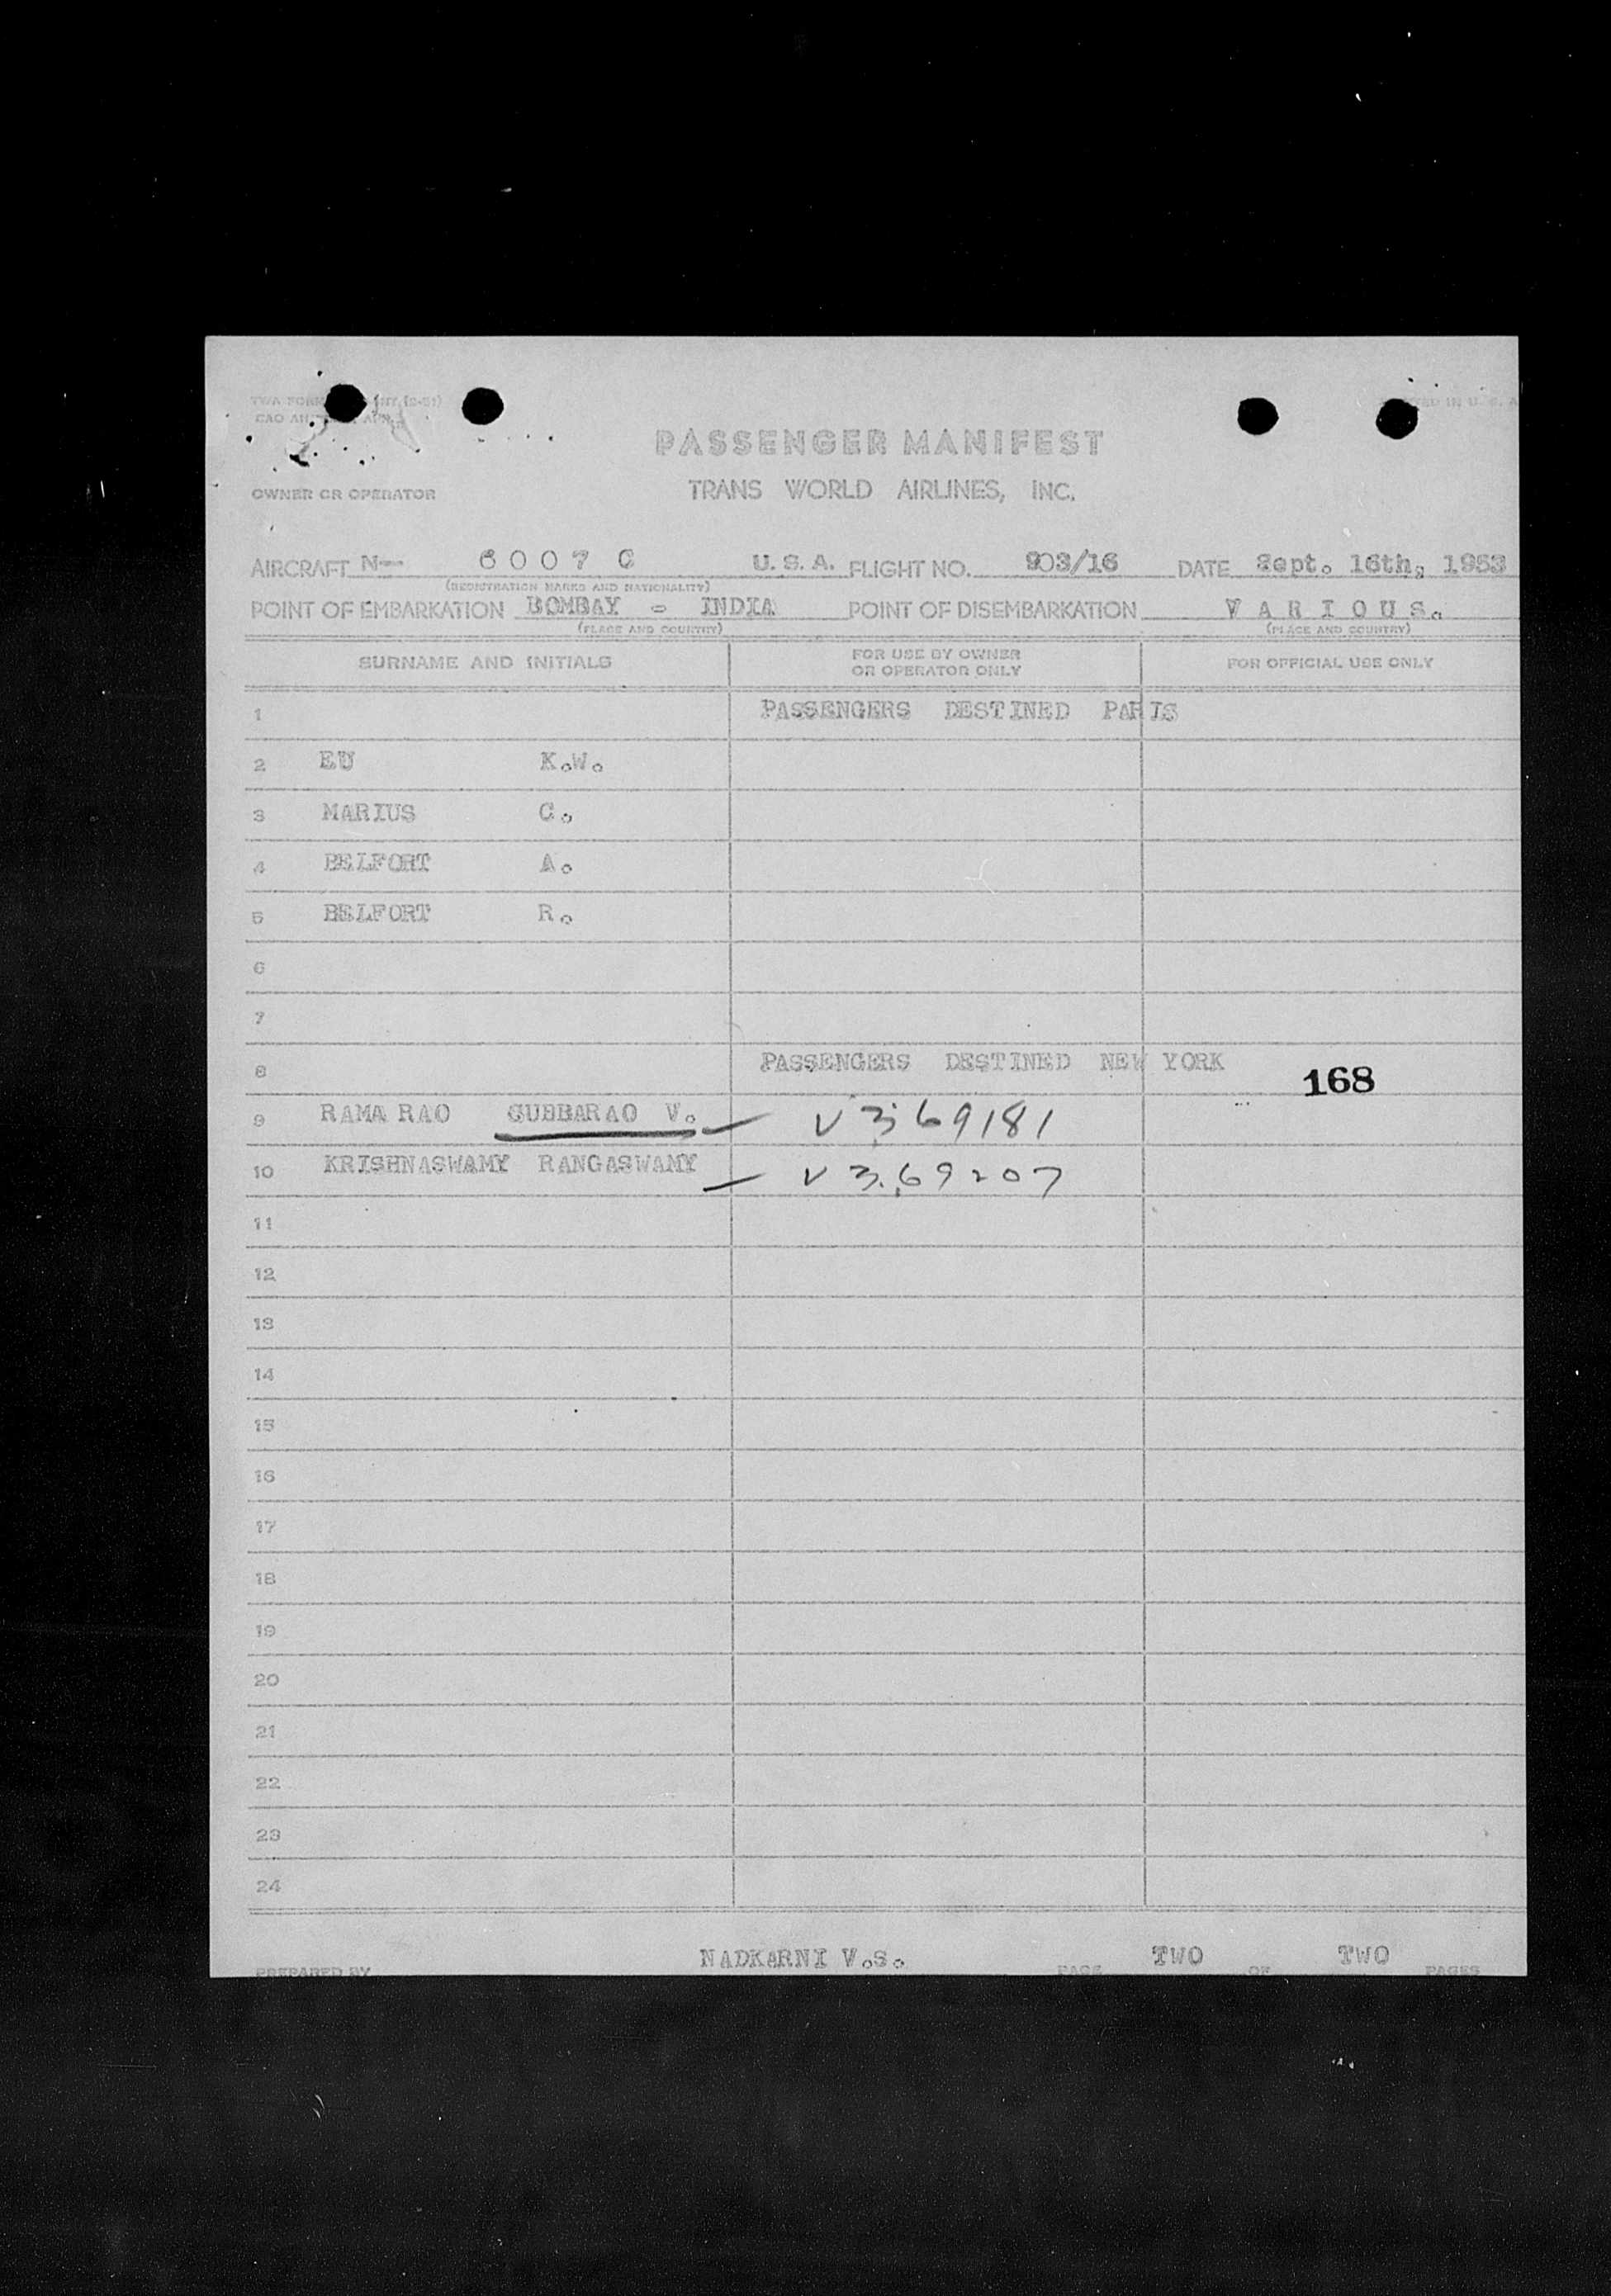 PASSENGER MANIFEST
OWNER OR OPERATOR TRANS WORLD AIRLINES, INC.
AIRCRAFT N— 6007 C U.S.A. FLIGHT NO. 903/16 DATE Sept. 16th, 1953
(REGISTRATION MARKS AND NATIONALITY)
POINT OF EMBARKATION BOMBAY - INDIA POINT OF DISEMBARKATION VARIOUS.
(PLACE AND COUNTRY) (PLACE AND COUNTRY)
SURNAME AND INITIALS FOR USE BY OWNER OR OPERATOR ONLY FOR OFFICIAL USE ONLY
1 PASSENGERS DESTINED PARIS
2 EU K.W.
3 MARIUS C.
4 BELFORT A.
5 BELFORT R.
6
7
8 PASSENGERS DESTINED NEW YORK 168
9 RAMA RAO SUBBARAO V. — V 369181
10 KRISHNASWAMY RANGASWAMY — V 369207
11
12
13
14
15
16
17
18
19
20
21
22
23
24
PREPARED BY NADKARNI V.S. PAGE TWO OF TWO PAGES